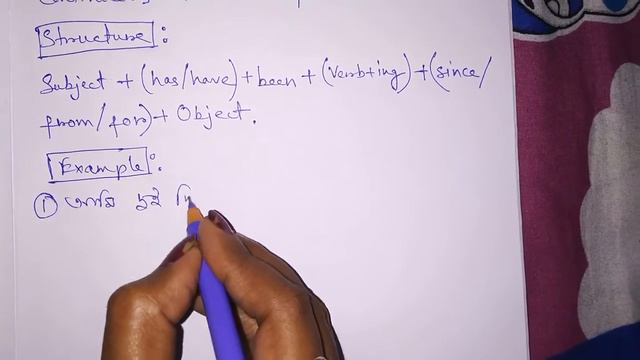 Structure :
Subject + (has/have) + been + (verb+ing) + (since/
from/for) + Object.
Example :
① আমি দুই